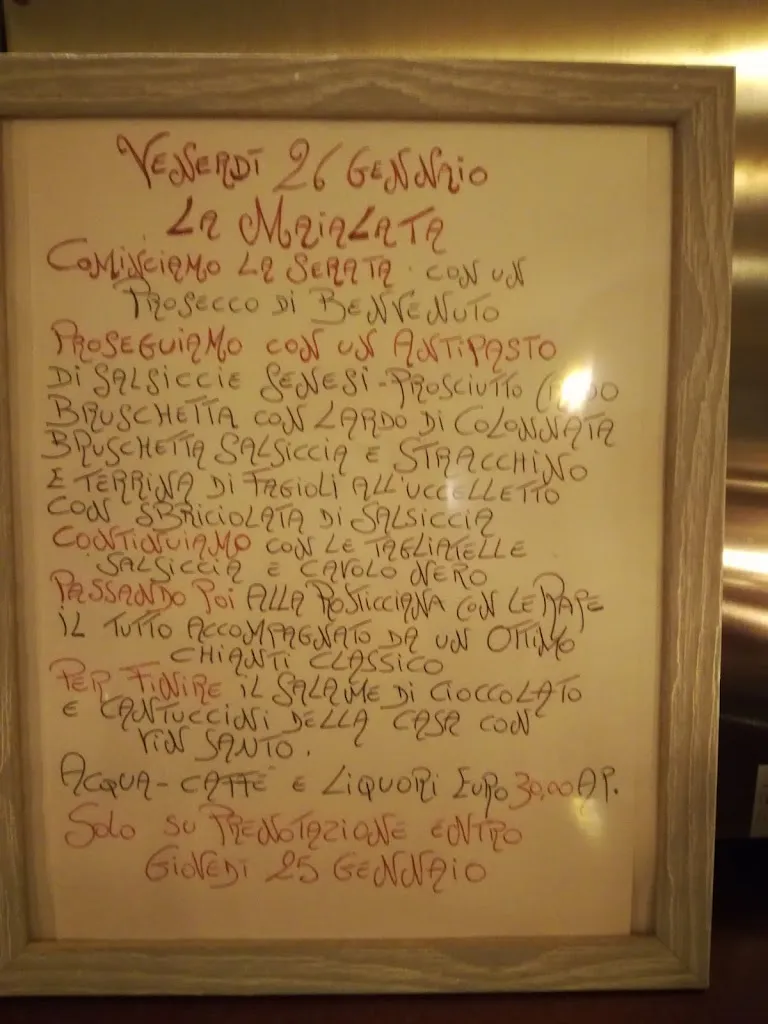 VENERDÌ 26 GENNAIO
LA MAIALATA
COMINCIAMO LA SERATA CON UN
PROSECCO DI BENVENUTO
PROSEGUIAMO CON UN ANTIPASTO
DI SALSICCIE SENESI - PROSCIUTTO
BRUSCHETTA CON LARDO DI COLONNATA
BRUSCHETTA SALSICCIA E STRACCHINO
E TERRINA DI FAGIOLI ALL'UCCELLETTO
CON SBRICIOLATA DI SALSICCIA
CONTINUIAMO CON LE TAGLIATELLE
SALSICCIA E CAVOLO NERO
PASSANDO POI ALLA ROSTICCIANA CON LE RAPE
IL TUTTO ACCOMPAGNATO DA UN OTTIMO
CHIANTI CLASSICO
PER FINIRE IL SALAME DI CIOCCOLATO
E CANTUCCINI DELLA CASA CON
VIN SANTO.
ACQUA - CAFFÈ E LIQUORI EURO 30,00 AP.
SOLO SU PRENOTAZIONE ENTRO
GIOVEDÌ 25 GENNAIO